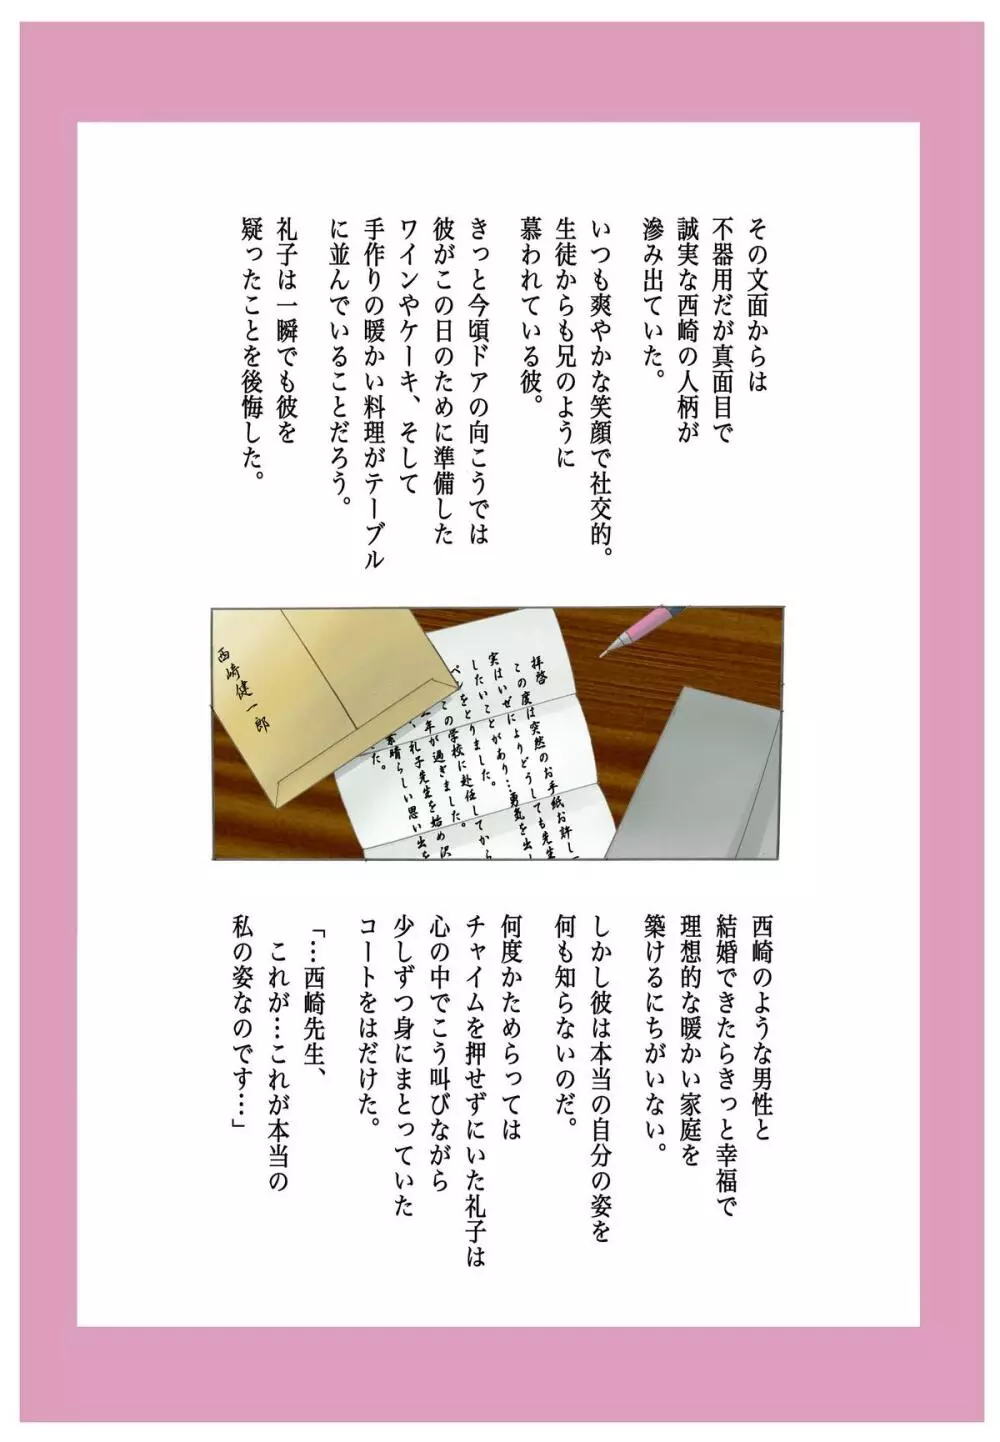 その文面からは
不器用だが真面目で
誠実な西崎の人柄が
滲み出ていた。
いつも爽やかな笑顔で社交的。
生徒からも兄のように
慕われている彼。
きっと今頃ドアの向こうでは
彼がこの日のために準備した
ワインやケーキ、そして
手作りの暖かい料理がテーブル
に並んでいることだろう。
礼子は一瞬でも彼を
疑ったことを後悔した。
西崎健一郎
拝啓
この度は突然のお手紙お許し
実はいぜによりどうしても先生
したいことがあり…勇気を出し
ペンをとりました。
この学校に赴任してから
年が過ぎました。
、礼子先生を始め沢
素晴らしい思い出を
た。
西崎のような男性と
結婚できたらきっと幸福で
理想的な暖かい家庭を
築けるにちがいない。
しかし彼は本当の自分の姿を
何も知らないのだ。
何度かためらっては
チャイムを押せずにいた礼子は
心の中でこう叫びながら
少しずつ身にまとっていた
コートをはだけた。
「…西崎先生、
これが…これが本当の
私の姿なのです…」